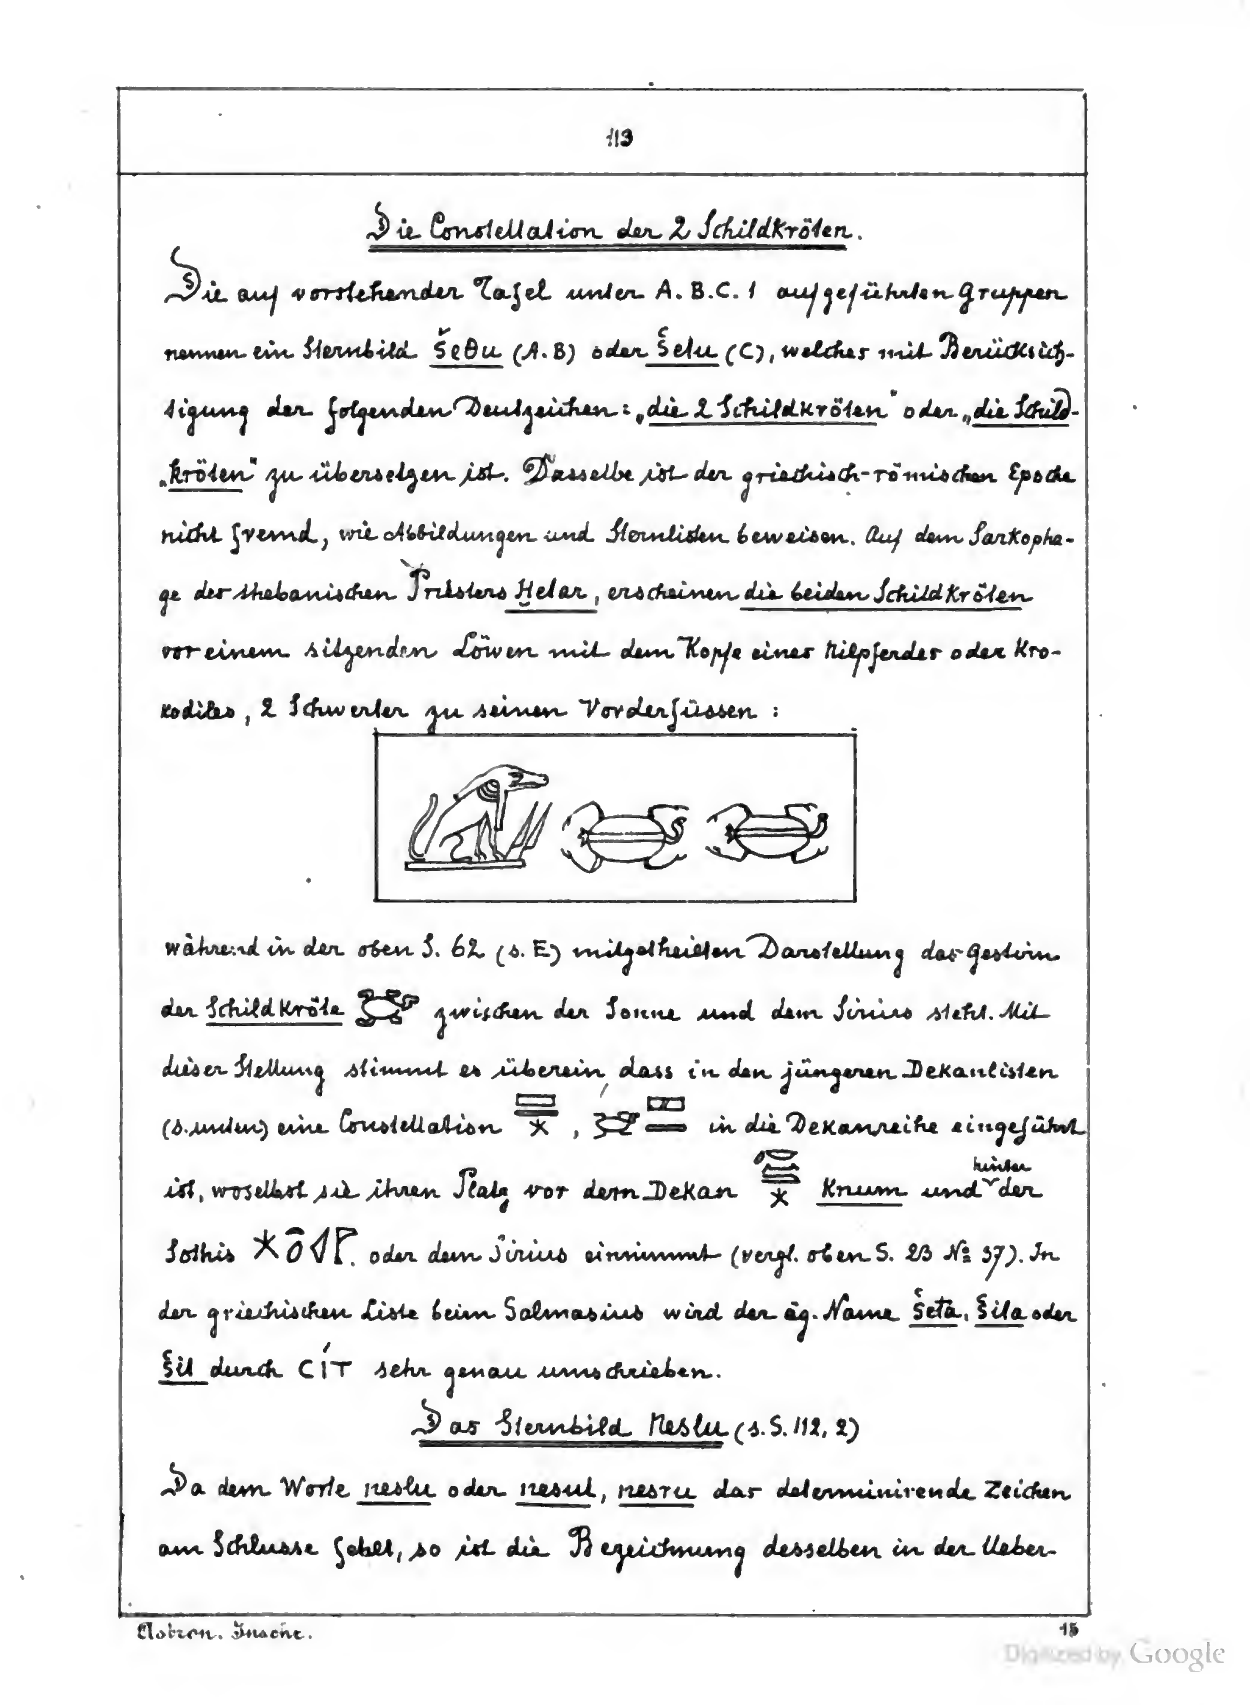 113
Die Constellation der 2 Schildkröten.
Die auf vorstehender Tafel unter A. B. C. 1 aufgeführten Gruppen
nennen ein Sternbild šeθu (A. B) oder šetu (C), welches mit Berücksich-
tigung der folgenden Deutzeichen: „die 2 Schildkröten" oder „die Schild-
„kröten" zu übersetzen ist. Dasselbe ist der griechisch-römischen Epoche
nicht fremd, wie Abbildungen und Sternlisten beweisen. Auf dem Sarkopha-
ge des thebanischen Priesters Ḥetar, erscheinen die beiden Schildkröten
vor einem sitzenden Löwen mit dem Kopfe eines Nilpferdes oder Kro-
kodiles, 2 Schwerter zu seinen Vorderfüssen :
während in der oben S. 62 (s. E) mitgetheilten Darstellung das Gestirn
der Schildkröte zwischen der Sonne und dem Sirius steht. Mit
dieser Stellung stimmt es überein, dass in den jüngeren Dekanlisten
(s. unten) eine Constellation , in die Dekanreihe eingeführt
ist, woselbst sie ihren Platz vor dem Dekan Knum und hinter der
Sothis oder dem Sirius einnimmt (vergl. oben S. 23 № 37). In
der griechischen Liste beim Salmasius wird der äg. Name šeta, šita oder
šit durch CÍT sehr genau umschrieben.
Das Sternbild Neslu (s. S. 112, 2)
Da dem Worte neslu oder nesul, nesru das determinirende Zeichen
am Schlusse fehlt, so ist die Bezeichnung desselben in der Ueber-
Astron. Inschr.
15
Digitized by Google